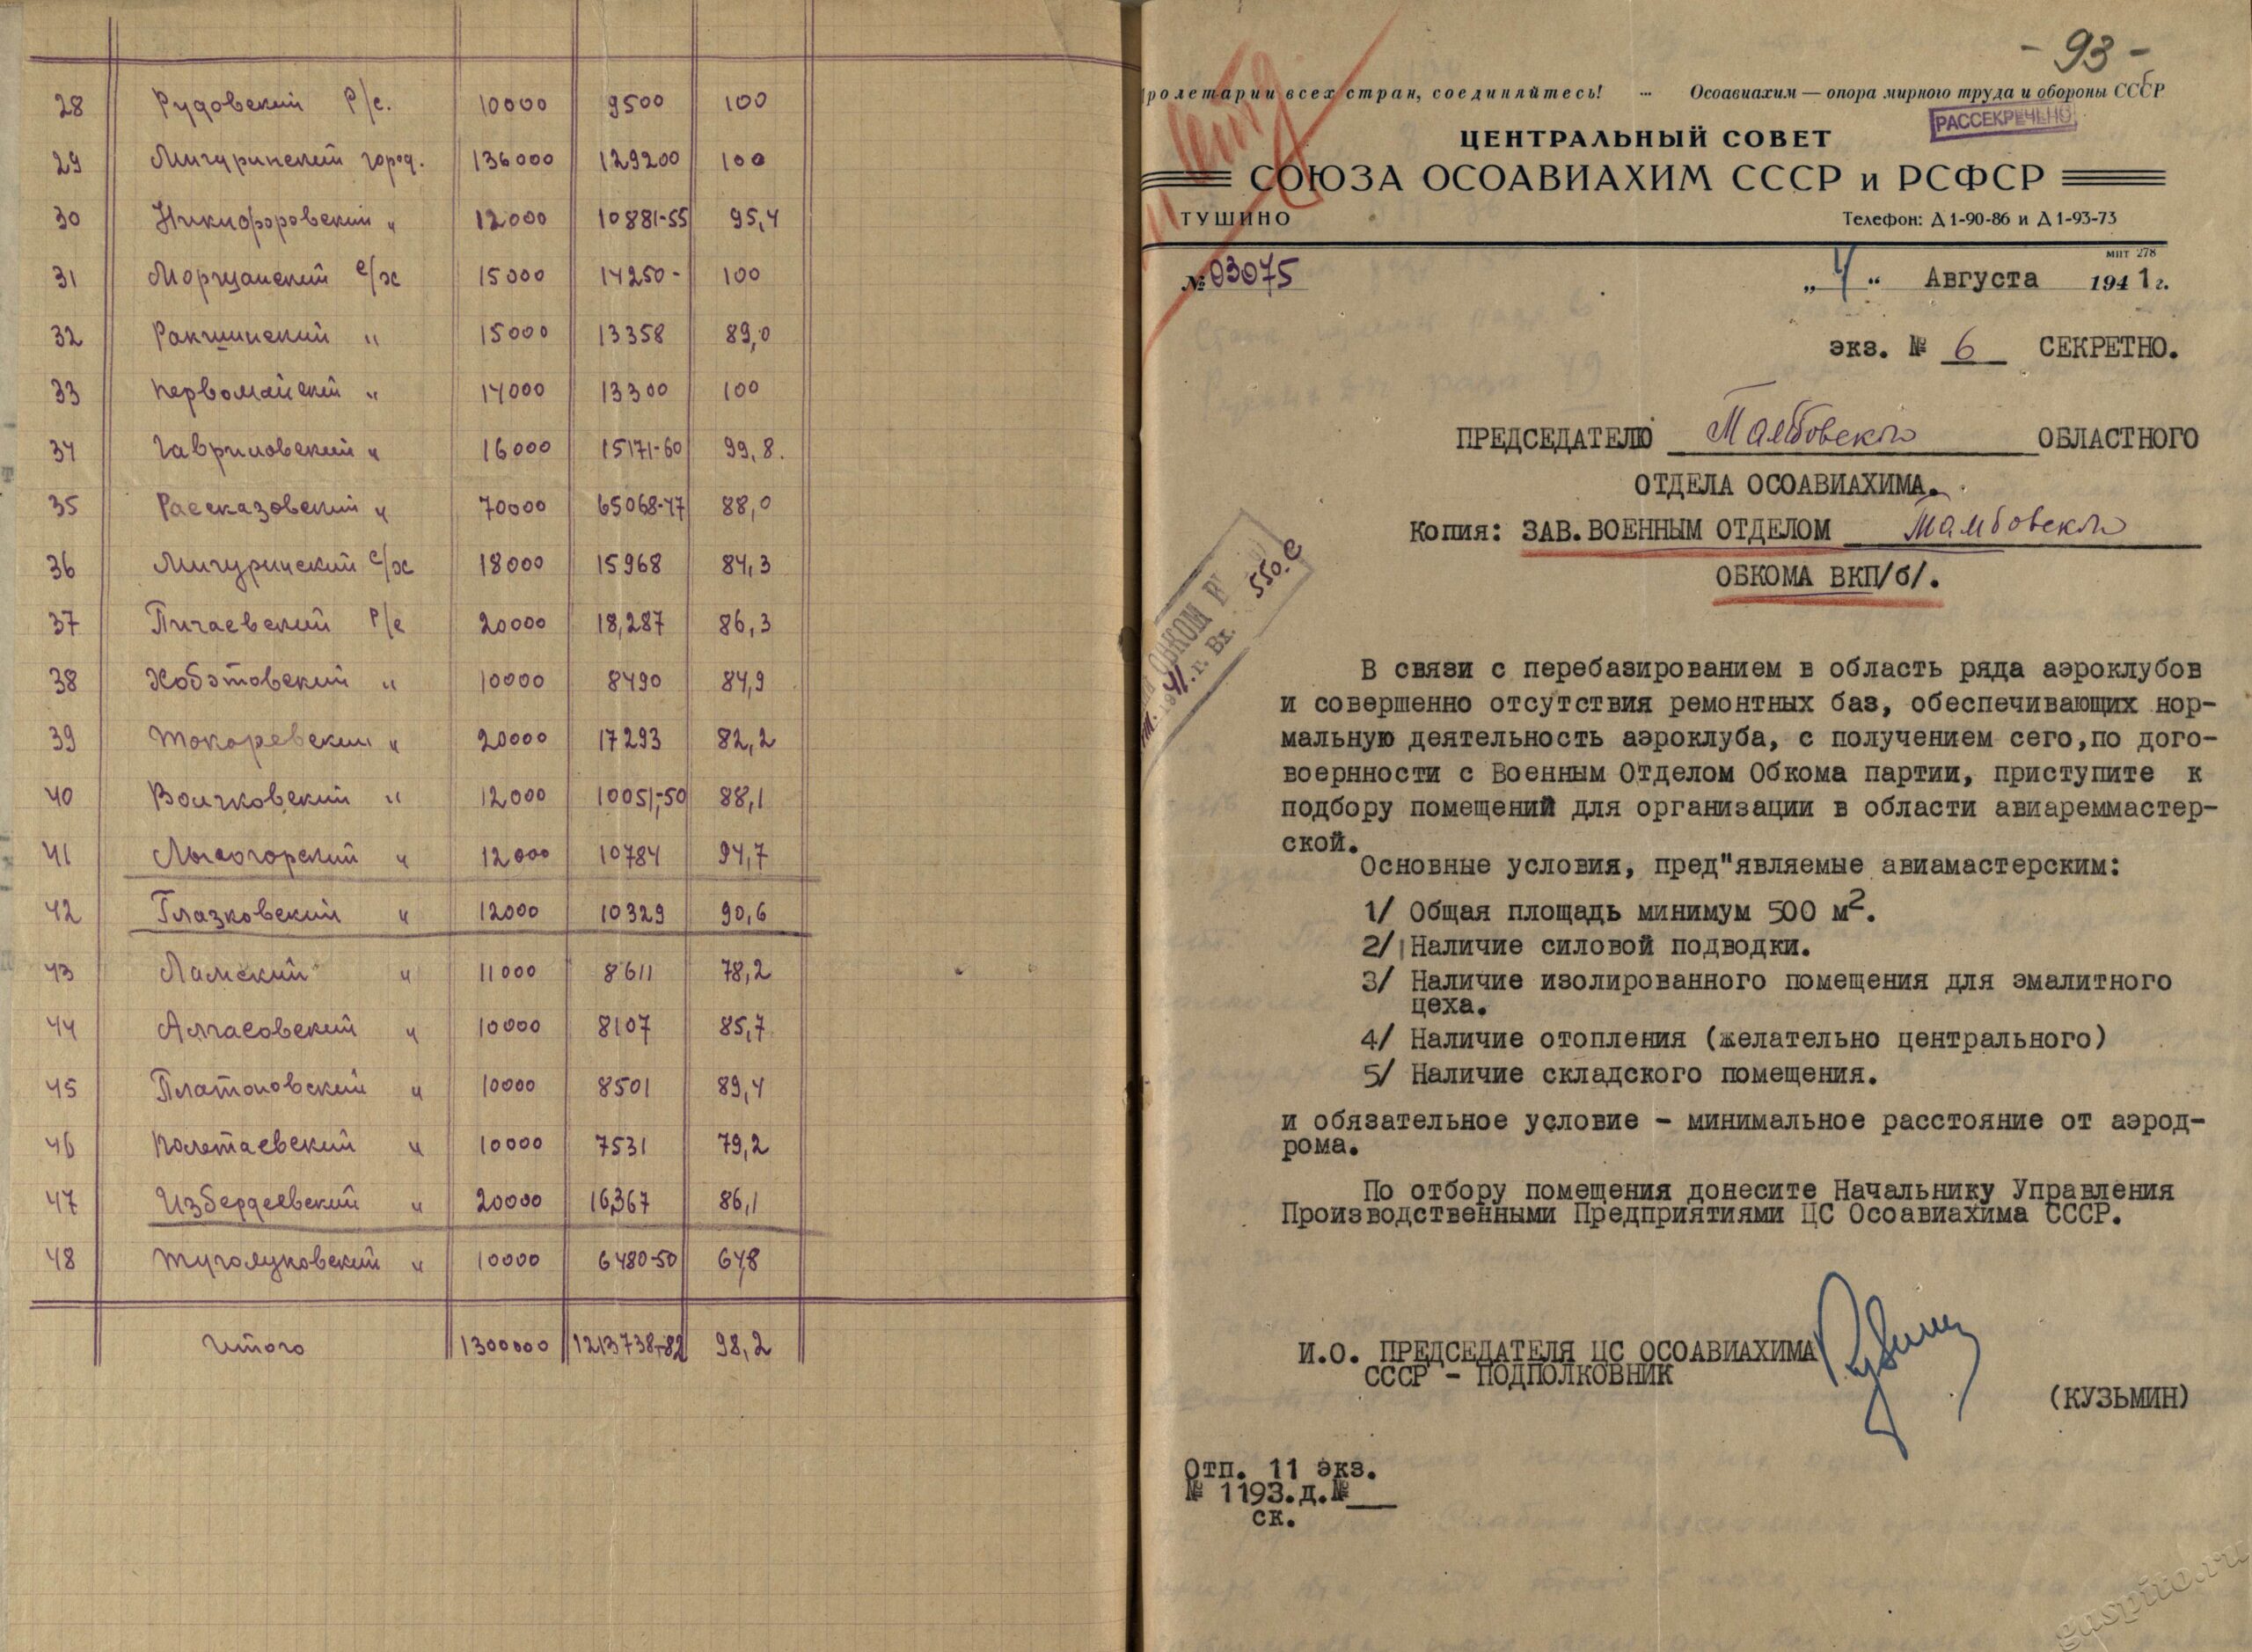 28 Рудовский Р/с. 10000 9500 100
29 Мичуринский город. 136000 129200 100
30 Никифоровский " 12000 10881-55 95,4
31 Моршанский с/х 15000 14250- 100
32 Ракшинский " 15000 13358 89,0
33 Первомайский " 14000 13300 100
34 Гавриловский " 16000 15171-60 99,8.
35 Рассказовский " 70000 65068-47 88,0
36 Мичуринский с/х 18000 15968 84,3
37 Пичаевский Р/с 20000 18,287 86,3
38 Хоботовский " 10000 8490 84,9
39 Токаревский " 20000 17293 82,2
40 Волчковский " 12000 10051,-50 88,1
41 Лысогорский " 12000 10784 94,7
42 Глазковский " 12000 10329 90,6
43 Ламский " 11000 8611 78,2
44 Алгасовский " 10000 8107 85,7
45 Платоновский " 10000 8501 89,4
46 Полетаевский " 10000 7531 79,2
47 Избердеевский " 20000 16,367 86,1
48 Туголуковский " 10000 6480-50 64,8
Итого 1300000 1213738,-82 98,2
- 93 -
ролетарии всех стран, соединяйтесь! ... Осоавиахим — опора мирного труда и обороны СССР
РАССЕКРЕЧЕНО
ЦЕНТРАЛЬНЫЙ СОВЕТ
СОЮЗА ОСОАВИАХИМ СССР и РСФСР
ТУШИНО Телефон: Д 1-90-86 и Д 1-93-73
мпт 278
№ 03075 „4“ Августа 1941 г.
экз. № 6 СЕКРЕТНО.
ПРЕДСЕДАТЕЛЮ Тамбовского ОБЛАСТНОГО
ОТДЕЛА ОСОАВИАХИМА.
Копия: ЗАВ.ВОЕННЫМ ОТДЕЛОМ Тамбовского
ОБКОМА ВКП/б/.
ОБКОМ
Вх. 550.с
41.г.
В связи с перебазированием в область ряда аэроклубов
и совершенно отсутствия ремонтных баз, обеспечивающих нор-
мальную деятельность аэроклуба, с получением сего,по дого-
воернности с Военным Отделом Обкома партии, приступите к
подбору помещений для организации в области авиареммастер-
ской.
Основные условия, пред"являемые авиамастерским:
1/ Общая площадь минимум 500 м2.
2/ Наличие силовой подводки.
3/ Наличие изолированного помещения для эмалитного
цеха.
4/ Наличие отопления (желательно центрального)
5/ Наличие складского помещения.
и обязательное условие - минимальное расстояние от аэрод-
рома.
По отбору помещения донесите Начальнику Управления
Производственными Предприятиями ЦС Осоавиахима СССР.
И.О. ПРЕДСЕДАТЕЛЯ ЦС ОСОАВИАХИМА
СССР - ПОДПОЛКОВНИК
(КУЗЬМИН)
Отп. 11 экз.
№ 1193.д.№
ск.
gaspito.ru